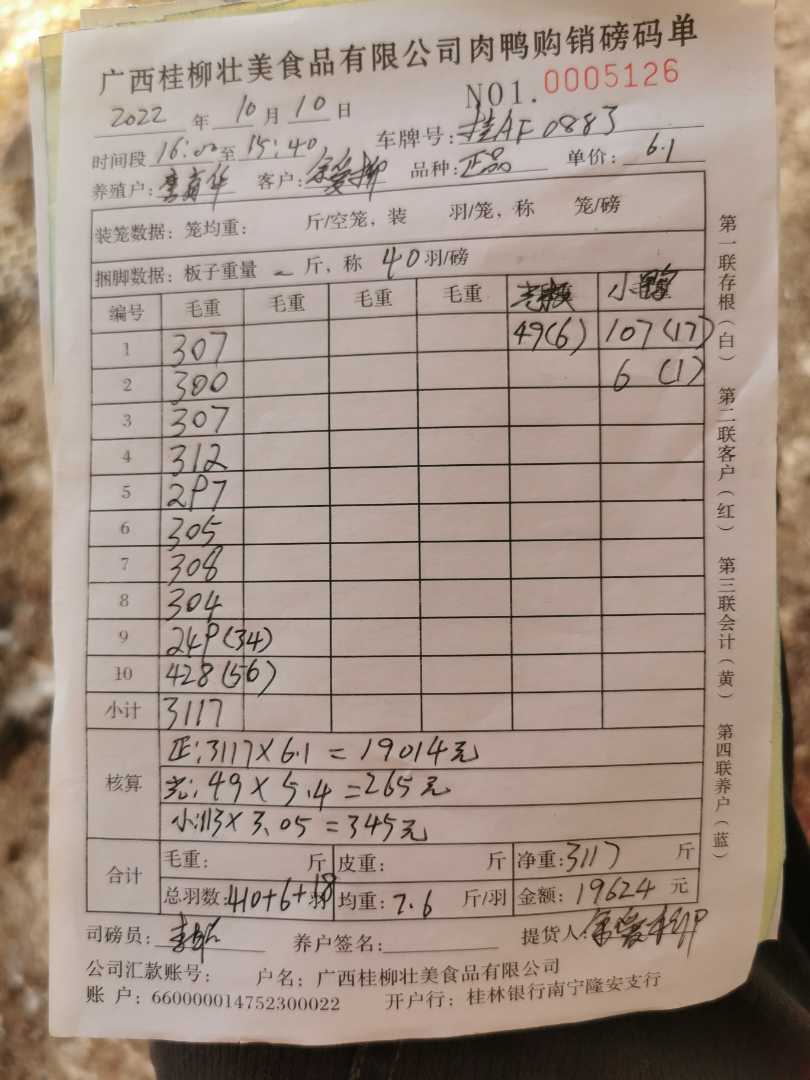 广西桂柳壮美食品有限公司肉鸭购销磅码单
2022 年 10 月 10 日 NO1. 0005126
时间段 16:00 至 15:40 车牌号: 桂AF0883
养殖户: 客户: 品种: 正品 单价: 6.1
装笼数据: 笼均重: 斤/空笼, 装 羽/笼, 称 笼/磅
捆脚数据: 板子重量 - 斤, 称 40 羽/磅
编号 毛重 毛重 毛重 毛重 小
1 307 49(6) 107(17)
2 300 6 (1)
3 307
4 312
5 297
6 305
7 308
8 304
9 249(34)
10 428(56)
小计 3117
核算
正:3117×6.1=19014元
光:49×5.4=265元
小:113×3.05=345元
合计
毛重: 斤 皮重: 斤 净重: 3117 斤
总羽数: 410+6+18 羽 均重: 7.6 斤/羽 金额: 19624 元
司磅员: 养户签名: 提货人:
公司汇款账号: 户名: 广西桂柳壮美食品有限公司
账 户: 660000014752300022 开户行: 桂林银行南宁隆安支行
第一联存根(白) 第二联客户(红) 第三联会计(黄) 第四联养户(蓝)